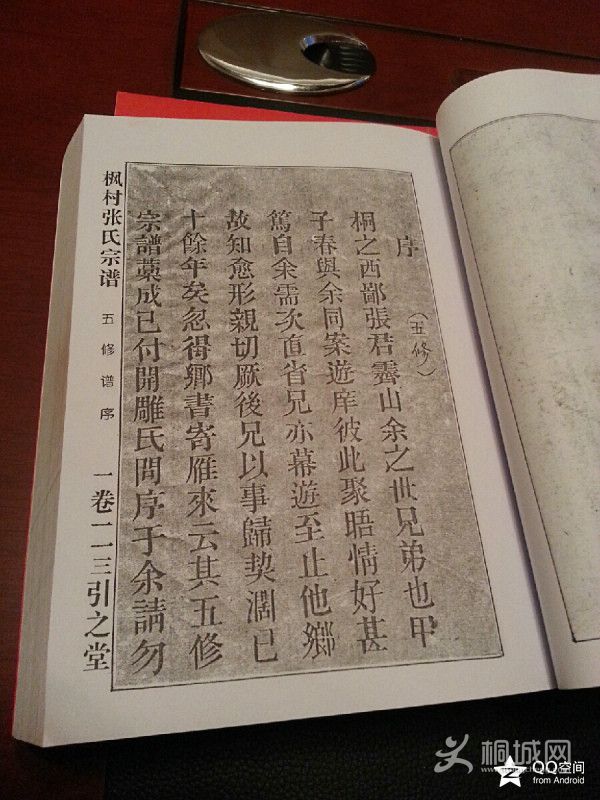 序
(五修)
桐之西鄙張君霽山余之世兄弟也甲
子春與余同案遊庠彼此聚晤情好甚
篤自余需次直省兄亦幕遊至止他鄉
故知愈形親切厥後兄以事歸契濶已
十餘年矣忽得鄉書寄雁來云其五修
宗譜藁成已付開雕氏問序于余請勿
枫村张氏宗谱 五修谱序 一卷一二三引之堂
桐城网
QQ空间
from Android